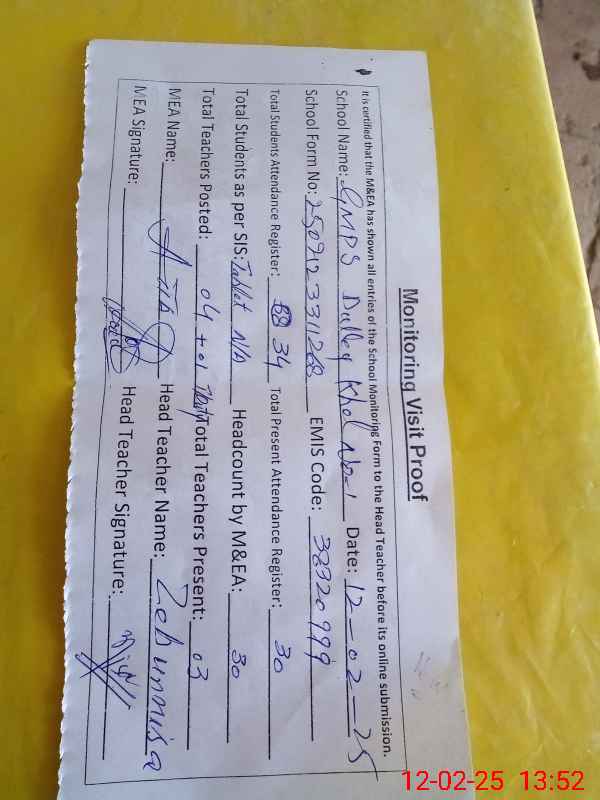 Monitoring Visit Proof
It is certified that the M&EA has shown all entries of the School Monitoring Form to the Head Teacher before its online submission.
School Name: GMPS Dalley Khel No-1 Date: 12-02-25
School Form No: EMIS Code: 38320999
Total Students Attendance Register: 34 Total Present Attendance Register: 30
Total Students as per SIS: Tablet N/A Headcount by M&EA: 30
Total Teachers Posted: 04 + 01 Total Teachers Present: 03
MEA Name: Head Teacher Name: Zebunnisa
MEA Signature: Head Teacher Signature:
12-02-25 13:52